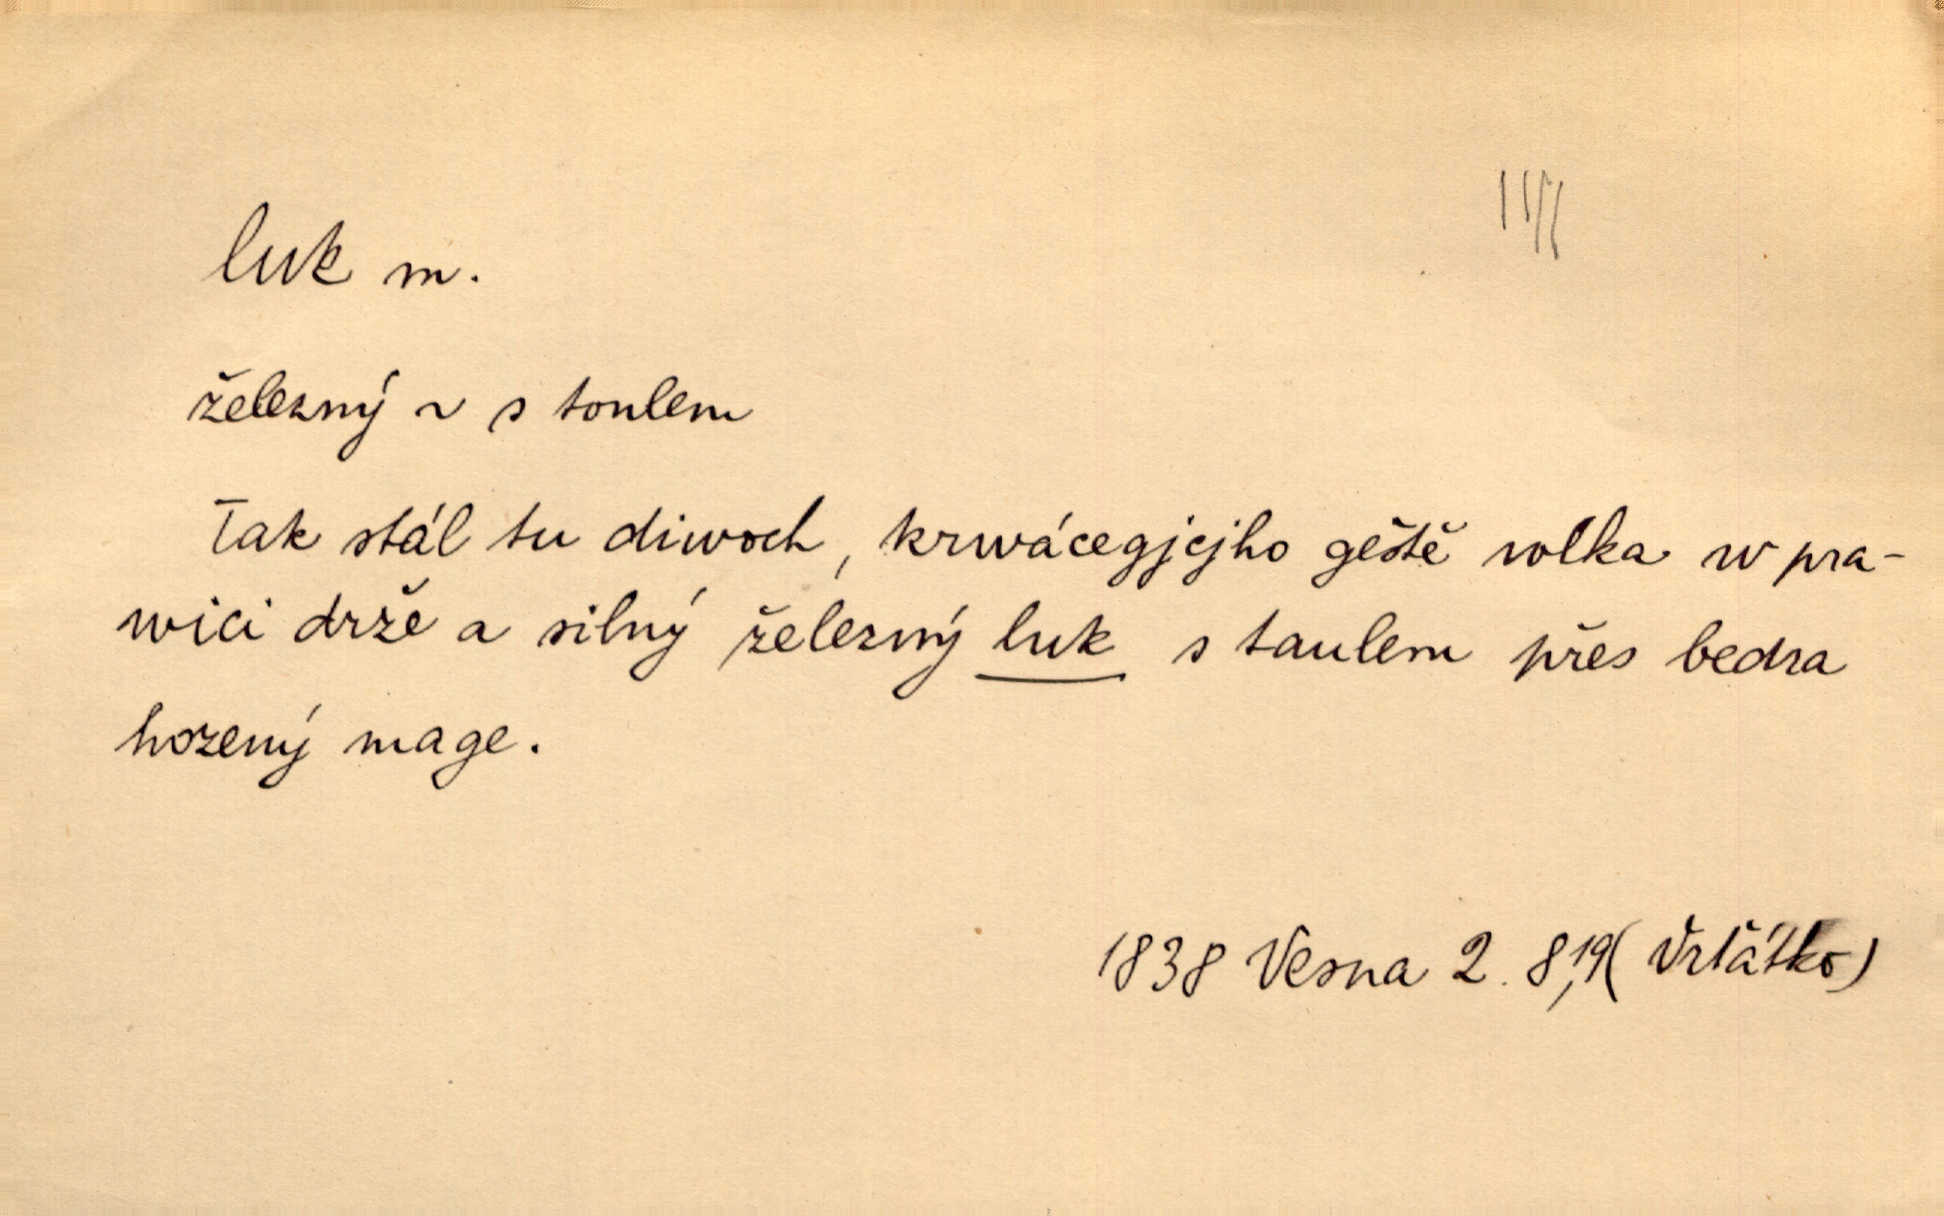 luk m.
železný ~ s toulem
Tak stál tu diwoch, krwácegjcjho geště wlka w pra-
wici drže a silný železný luk s taulem přes bedra
hozený mage.
1838 Vesna 2. 8,19 (Vrťátko)